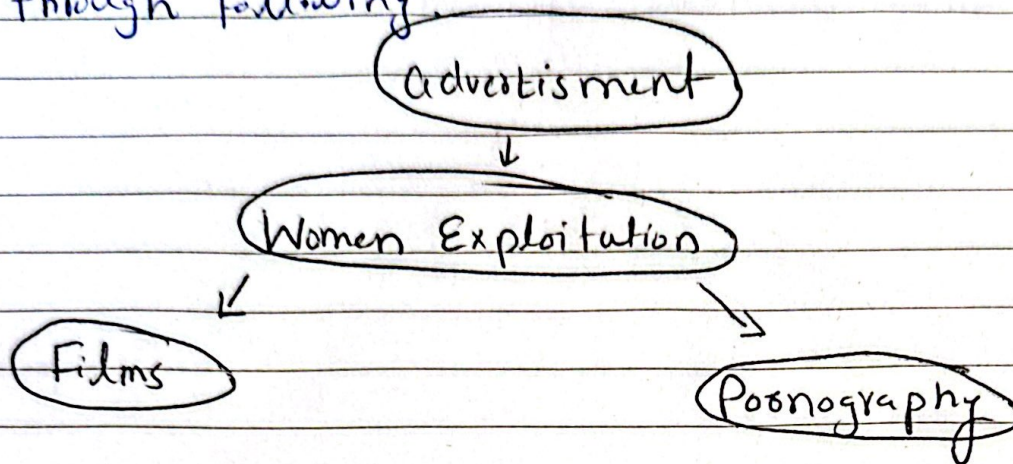 through following.
advertisment
Women Exploitation
Films
Pornography